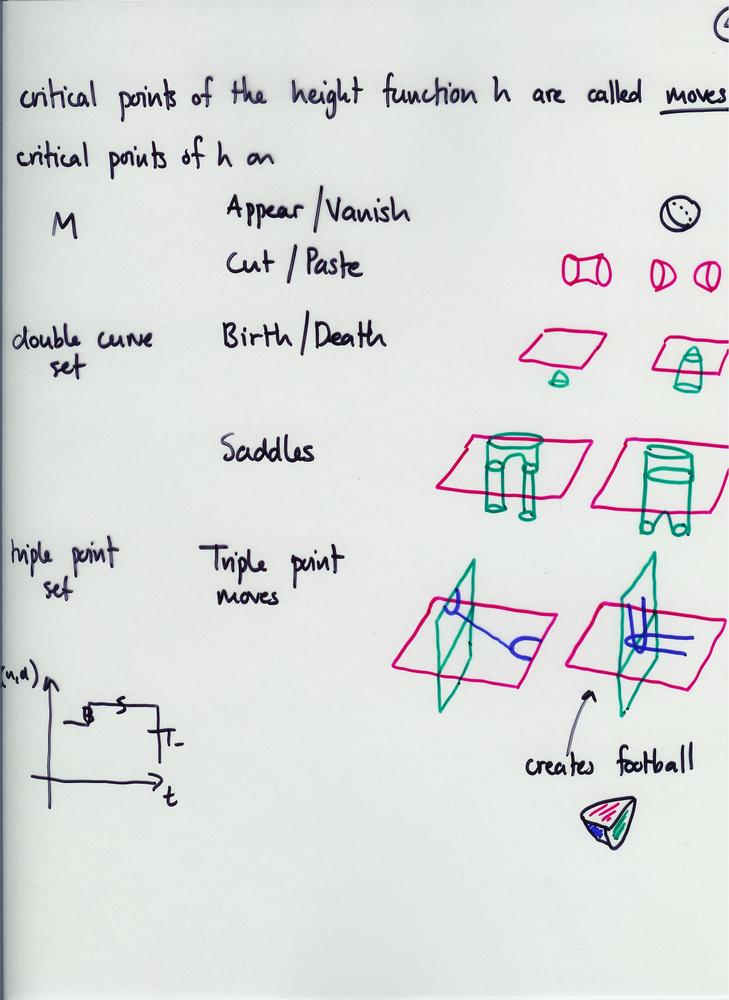 critical points of the height function h are called moves
critical points of h on
M Appear/Vanish
Cut/Paste
double curve set Birth/Death
Saddles
triple point set Triple point moves
B S
T-
t
creates football